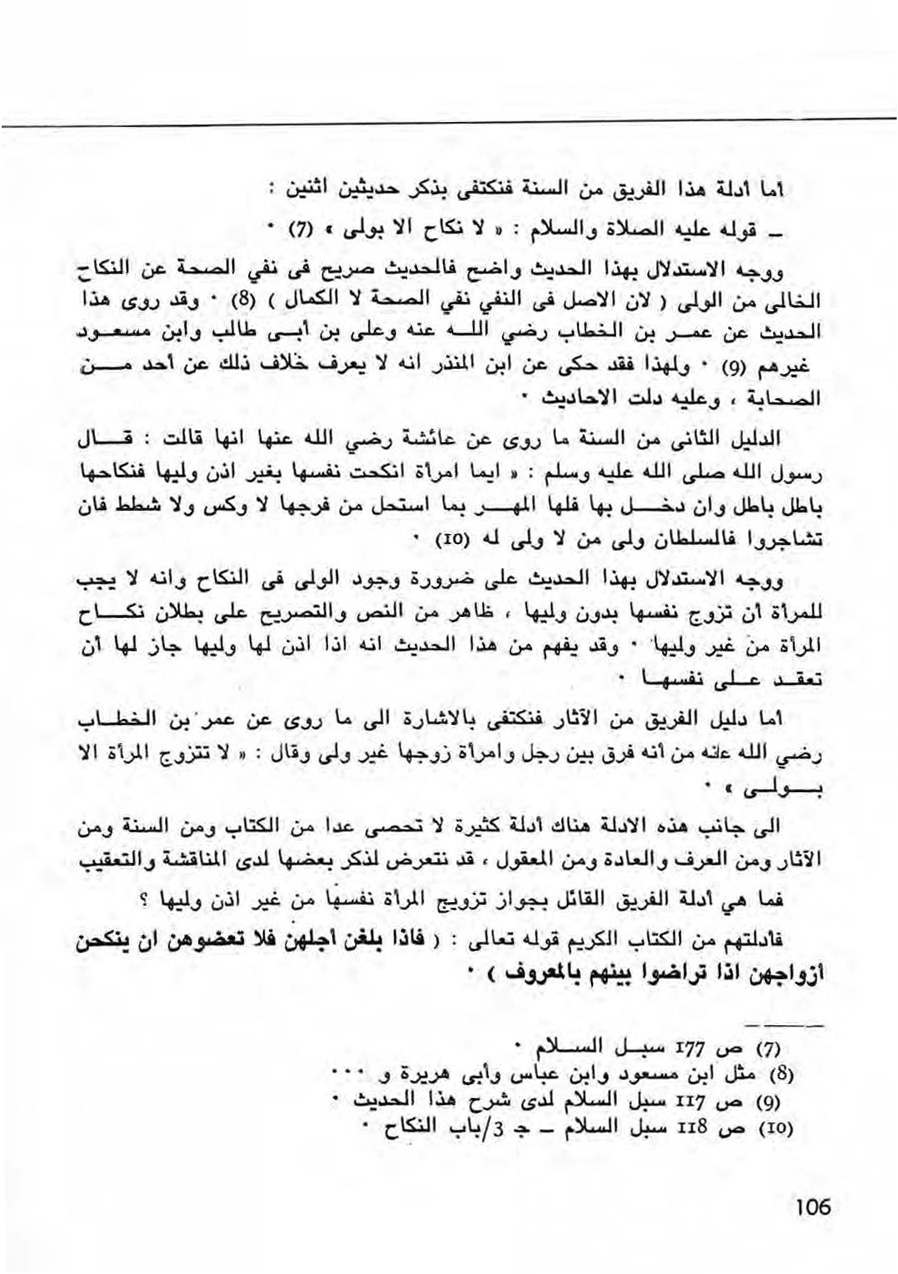 أما أدلة هذا الفريق من السنة فنكتفى بذكر حديثين اثنين :
ـ قوله عليه الصلاة والسلام : « لا نكاح الا بولى » (7) ٠
ووجه الاستدلال بهذا الحديث واضح فالحديث صريح فى نفي الصحة عن النكاح
الخالى من الولى ( لان الاصل فى النفي نفي الصحة لا الكمال ) (8) ٠ وقد روى هذا
الحديث عن عمـر بن الخطاب رضي اللـه عنه وعلى بن أبـى طالب وابن مسعـود
غيرهم (9) ٠ ولهذا فقد حكى عن ابن المنذر انه لا يعرف خلاف ذلك عن أحد مــن
الصحابة ، وعليه دلت الاحاديث ٠
الدليل الثانى من السنة ما روى عن عائشة رضي الله عنها انها قالت : قــال
رسول الله صلى الله عليه وسلم : « ايما امرأة انكحت نفسها بغير اذن وليها فنكاحها
باطل باطل وان دخــل بها فلها المهــر بما استحل من فرجها لا وكس ولا شطط فان
تشاجروا فالسلطان ولى من لا ولى له (10) ٠
ووجه الاستدلال بهذا الحديث على ضرورة وجود الولى فى النكاح وانه لا يجب
للمرأة أن تزوج نفسها بدون وليها ، ظاهر من النص والتصريح على بطلان نكــاح
المرأة من غير وليها ٠ وقد يفهم من هذا الحديث انه اذا اذن لها وليها جاز لها أن
تعقـد عـلى نفسهـا ٠
أما دليل الفريق من الآثار فنكتفى بالاشارة الى ما روى عن عمر بن الخطـاب
رضي الله عنه من أنه فرق بين رجل وامرأة زوجها غير ولى وقال : « لا تتزوج المرأة الا
بــولـى » ٠
الى جانب هذه الادلة هناك أدلة كثيرة لا تحصى عدا من الكتاب ومن السنة ومن
الآثار ومن العرف والعادة ومن المعقول ، قد نتعرض لذكر بعضها لدى المناقشة والتعقيب
فما هي أدلة الفريق القائل بجواز تزويج المرأة نفسها من غير اذن وليها ؟
فأدلتهم من الكتاب الكريم قوله تعالى : ( فاذا بلغن أجلهن فلا تعضوهن ان ينكحن
أزواجهن اذا تراضوا بينهم بالمعروف ) ٠
(7) ص 177 سبـل السـلام ٠
(8) مثل ابن مسعود وابن عباس وأبى هريرة و ٠٠٠
(9) ص 117 سبل السلام لدى شرح هذا الحديث ٠
(10) ص 118 سبل السلام ـ ج 3/باب النكاح ٠
106